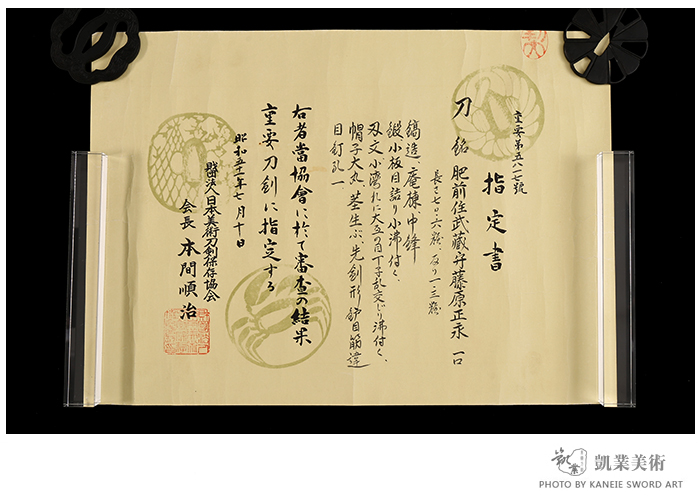 重要第五八一七號
指定書
刀 銘 肥前住武蔵守藤原正永 一口
長さ七〇・六糎、反り一・三糎、
鎬造、庵棟、中鋒
鍛小板目詰り小沸付く、
刃文小湾れに大互の目丁子乱交じり沸付く、
帽子大丸 茎生ぶ、先剣形 鑢目筋違
目釘孔一
右者當協會に於て審査の結果
重要刀剣に指定する
昭和五十年七月十日
財団法人日本美術刀剣保存協会
会長 本間順治
凱業美術
PHOTO BY KANEIE SWORD ART